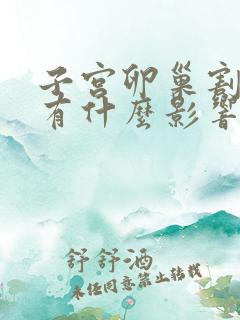 子宮卵巢割
有什麼影響
舒舒酒
未经同意禁止转载